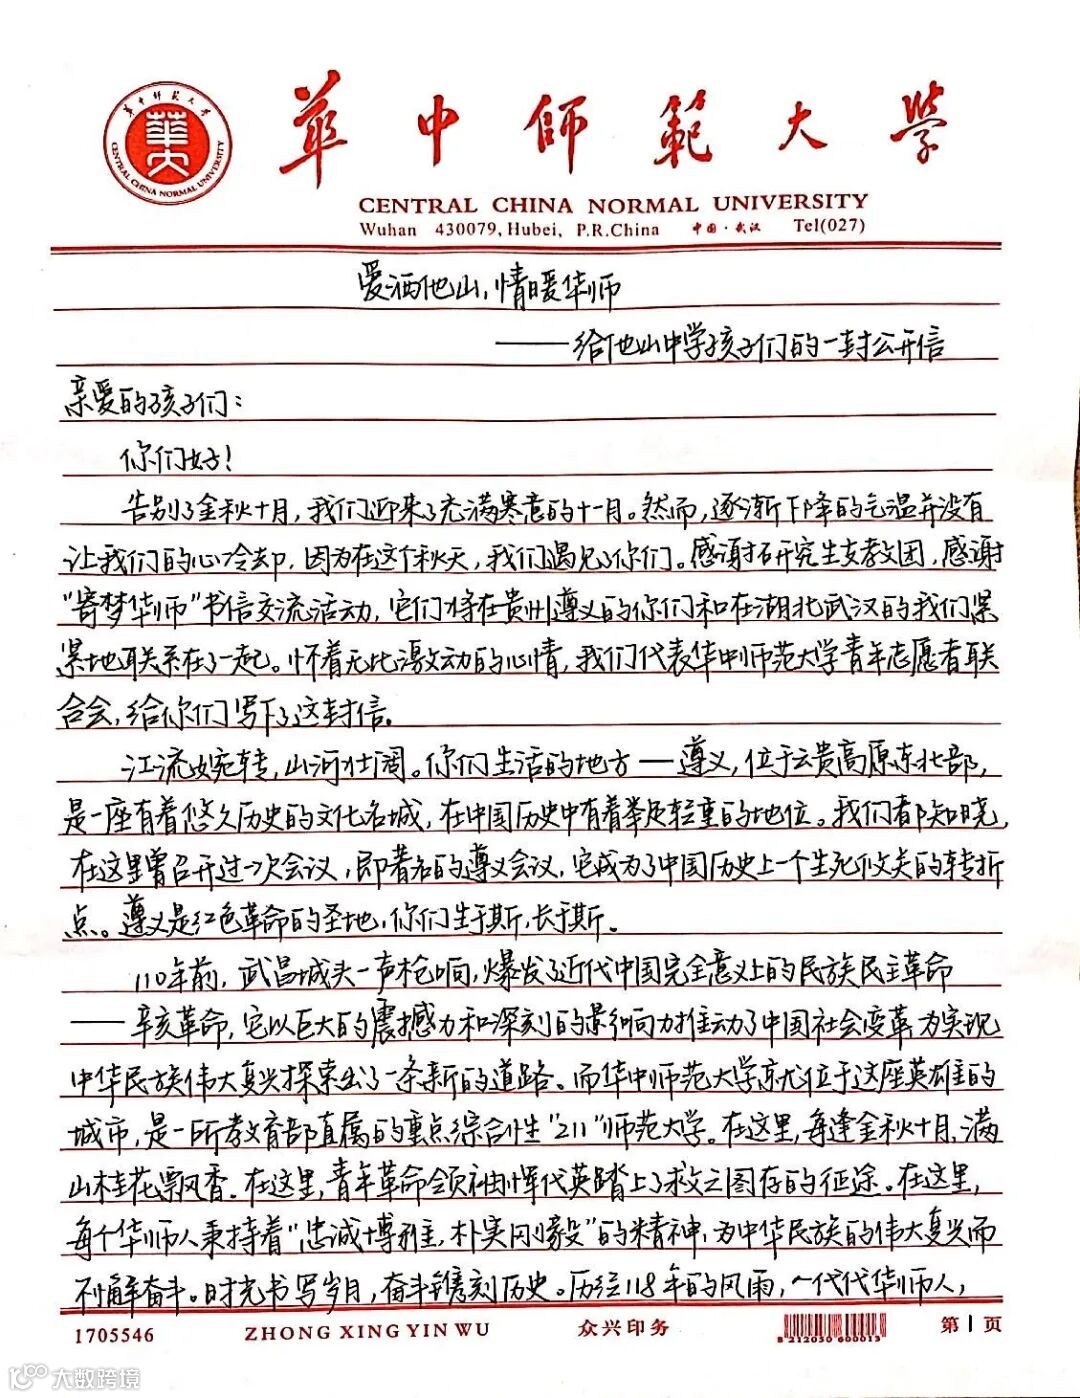 華中師範大學
華中師範大學
華大
CENTRAL CHINA NORMAL UNIVERSITY
CENTRAL CHINA NORMAL UNIVERSITY
Wuhan 430079, Hubei, P.R.China 中国·武汉 Tel(027)
爱洒他山,情暖华师
——给他山中学孩子们的一封公开信
亲爱的孩子们:
你们好!
告别了金秋十月,我们迎来了充满寒意的十一月。然而,逐渐下降的气温并没有
让我们的心冷却,因为在这个秋天,我们遇见了你们。感谢研究生支教团,感谢
“寄梦华师”书信交流活动,它们将在贵州遵义的你们和在湖北武汉的我们紧
紧地联系在了一起。怀着无比激动的心情,我们代表华中师范大学青年志愿者联
合会,给你们写下了这封信。
江流婉转,山河壮阔。你们生活的地方一遵义,位于云贵高原东北部,
是一座有着悠久历史的文化名城,在中国历史中有着举足轻重的地位。我们都知晓,
在这里曾召开过一次会议,即著名的遵义会议,它成为了中国历史上一个生死攸关的转折
点。遵义是红色革命的圣地,你们生于斯,长于斯。
110年前,武昌城头一声枪响,爆发了近代中国完全意义上的民族民主革命
——辛亥革命,它以巨大的震撼力和深刻的影响力推动了中国社会变革,为实现
中华民族伟大复兴探索出了一条新的道路。而华中师范大学就位于这座英雄的
城市,是一所教育部直属的重点综合性“211”师范大学。在这里,每逢金秋十月,满
山桂花飘香。在这里,青年革命领袖恽代英踏上了救亡图存的征途。在这里,
每个华师人秉持着“忠诚博雅,朴实刚毅”的精神,为中华民族的伟大复兴而
不懈奋斗。时光书写岁月,奋斗镌刻历史。历经118年的风雨,一代代华师人,
1705546 ZHONG XING YIN WU 众兴印务 8 212050 600013 第1页
大数跨境